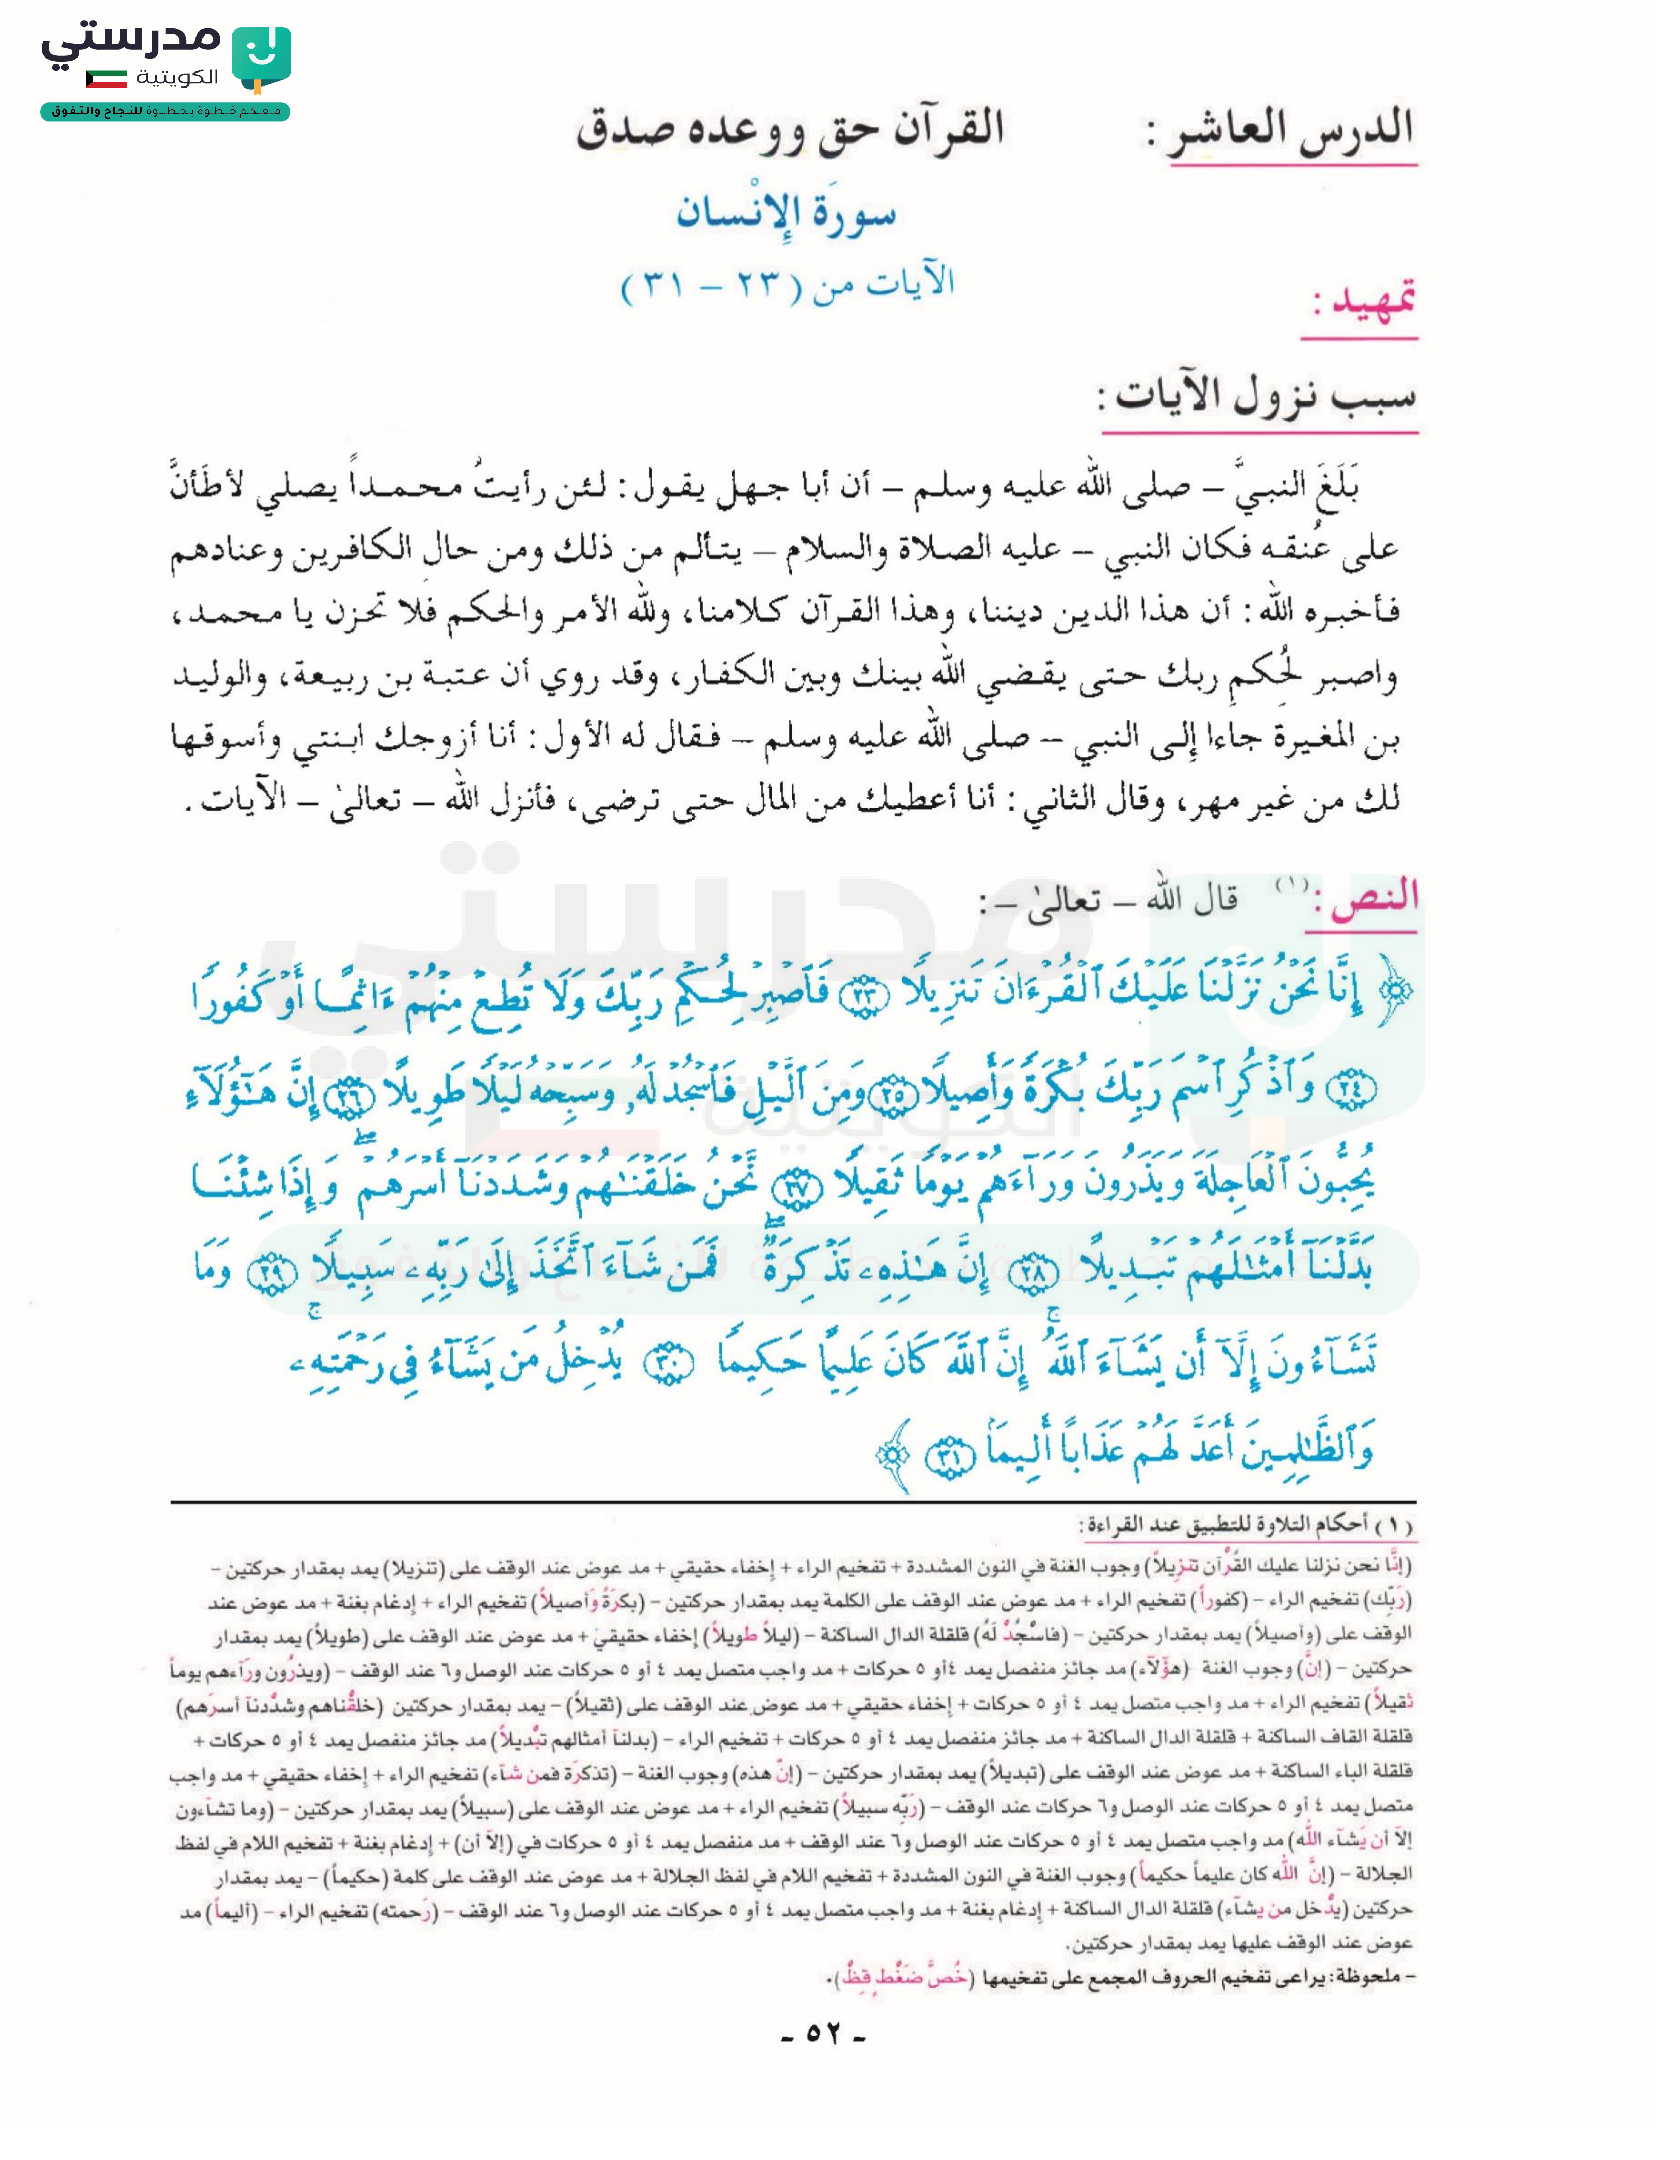 مدرستي
الكويتية
معكم خطوة بخطوة للنجاح والتفوق
الدرس العاشر : القرآن حق ووعده صدق
سورَة الإِنْسان
الآيات من ( ٢٣ – ٣١ )
تمهيد :
سبب نزول الآيات :
بَلَغَ النبيَّ – صلى الله عليه وسلم – أن أبا جهل يقول : لئن رأيتُ محمداً يصلي لأطَأنَّ
على عُنقه فكان النبي – عليه الصلاة والسلام – يتألم من ذلك ومن حال الكافرين وعنادهم
فأخبره الله : أن هذا الدين ديننا، وهذا القرآن كلامنا، ولله الأمر والحكم فلا تحزن يا محمد،
واصبر لحُكمِ ربك حتى يقضي الله بينك وبين الكفار، وقد روي أن عتبة بن ربيعة، والوليد
بن المغيرة جاءا إلى النبي – صلى الله عليه وسلم – فقال له الأول : أنا أزوجك ابنتي وأسوقها
لك من غير مهر، وقال الثاني : أنا أعطيك من المال حتى ترضى، فأنزل الله – تعالىٰ – الآيات .
النص : (١) قال الله – تعالىٰ – :
﴿ إِنَّا نَحْنُ نَزَّلْنَا عَلَيْكَ ٱلْقُرْءَانَ تَنزِيلًا ٢٣ فَٱصْبِرْ لِحُكْمِ رَبِّكَ وَلَا تُطِعْ مِنْهُمْ ءَاثِمًا أَوْ كَفُورًا
٢٤ وَٱذْكُرِ ٱسْمَ رَبِّكَ بُكْرَةً وَأَصِيلًا ٢٥ وَمِنَ ٱلَّيْلِ فَٱسْجُدْ لَهُۥ وَسَبِّحْهُ لَيْلًا طَوِيلًا ٢٦ إِنَّ هَٰٓؤُلَآءِ
يُحِبُّونَ ٱلْعَاجِلَةَ وَيَذَرُونَ وَرَآءَهُمْ يَوْمًا ثَقِيلًا ٢٧ نَّحْنُ خَلَقْنَٰهُمْ وَشَدَدْنَآ أَسْرَهُمْ ۖ وَإِذَا شِئْنَا
بَدَّلْنَآ أَمْثَٰلَهُمْ تَبْدِيلًا ٢٨ إِنَّ هَٰذِهِۦ تَذْكِرَةٌ ۖ فَمَن شَآءَ ٱتَّخَذَ إِلَىٰ رَبِّهِۦ سَبِيلًا ٢٩ وَمَا
تَشَآءُونَ إِلَّآ أَن يَشَآءَ ٱللَّهُ ۚ إِنَّ ٱللَّهَ كَانَ عَلِيمًا حَكِيمًا ٣٠ يُدْخِلُ مَن يَشَآءُ فِى رَحْمَتِهِۦ ۚ
وَٱلظَّٰلِمِينَ أَعَدَّ لَهُمْ عَذَابًا أَلِيمًۢا ٣١ ﴾
( ١ ) أحكام التلاوة للتطبيق عند القراءة :
(إنَّا نحن نزلنا عليك القُرْآن تنزِيلاً) وجوب الغنة في النون المشددة + تفخيم الراء + إخفاء حقيقي + مد عوض عند الوقف على (تنزيلا) يمد بمقدار حركتين –
(رَبّك) تفخيم الراء – (كفوراً) تفخيم الراء + مد عوض عند الوقف على الكلمة يمد بمقدار حركتين – (بكرَةً وَأصيلاً) تفخيم الراء + إدغام بغنة + مد عوض عند
الوقف على (وأصيلاً) يمد بمقدار حركتين – (فاسْجُدْ لَهُ) قلقلة الدال الساكنة – (ليلاً طويلاً) إخفاء حقيقي + مد عوض عند الوقف على (طويلاً) يمد بمقدار
حركتين – (إنَّ) وجوب الغنة (هؤلآء) مد جائز منفصل يمد ٤ أو ٥ حركات + مد واجب متصل يمد ٤ أو ٥ حركات عند الوصل و٦ عند الوقف – (ويذرُون ورَآءهم يوماً
ثقيلاً) تفخيم الراء + مد واجب متصل يمد ٤ أو ٥ حركات + إخفاء حقيقي + مد عوض عند الوقف على (ثقيلاً) – يمد بمقدار حركتين (خلقْناهم وشددْنآ أسرَهم)
قلقلة القاف الساكنة + قلقلة الدال الساكنة + مد جائز منفصل يمد ٤ أو ٥ حركات + تفخيم الراء – (بدلنآ أمثالهم تبْديلاً) مد جائز منفصل يمد ٤ أو ٥ حركات +
قلقلة الباء الساكنة + مد عوض عند الوقف على (تبديلاً) يمد بمقدار حركتين – (إنّ هذه) وجوب الغنة – (تذكرَة فمن شآء) تفخيم الراء + إخفاء حقيقي + مد واجب
متصل يمد ٤ أو ٥ حركات عند الوصل و٦ حركات عند الوقف – (رَبّه سبيلاً) تفخيم الراء + مد عوض عند الوقف على (سبيلاً) يمد بمقدار حركتين – (وما تشآءون
إلآ أن يَشآء الله) مد واجب متصل يمد ٤ أو ٥ حركات عند الوصل و٦ عند الوقف + مد منفصل يمد ٤ أو ٥ حركات في (إلآ أن) + إدغام بغنة + تفخيم اللام في لفظ
الجلالة – (إنَّ الله كان عليماً حكيماً) وجوب الغنة في النون المشددة + تفخيم اللام في لفظ الجلالة + مد عوض عند الوقف على كلمة (حكيماً) – يمد بمقدار
حركتين (يدْخل من يشآء) قلقلة الدال الساكنة + إدغام بغنة + مد واجب متصل يمد ٤ أو ٥ حركات عند الوصل و٦ عند الوقف – (رَحمته) تفخيم الراء – (أليماً) مد
عوض عند الوقف عليها يمد بمقدار حركتين.
– ملحوظة: يراعى تفخيم الحروف المجمع على تفخيمها (خُصَّ ضَغْطٍ قِظْ).
- ٥٢ -